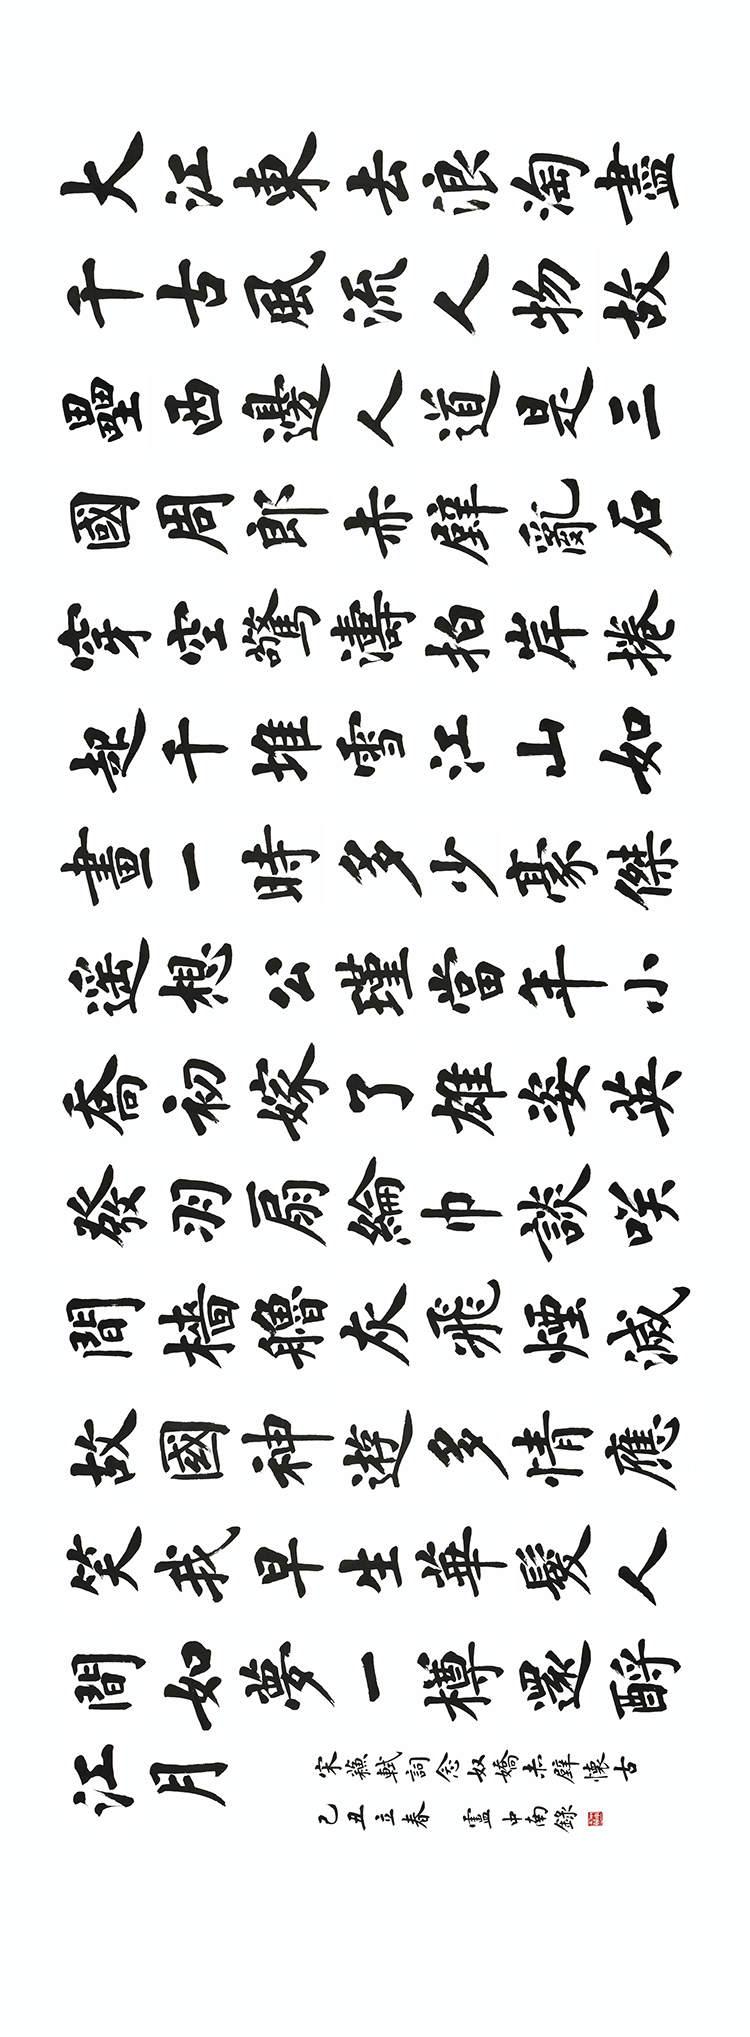 大江東去浪淘盡
千古風流人物故
壘西邊人道是三
國周郎赤壁亂石
穿空驚濤拍岸捲
起千堆雪江山如
畫一時多少豪傑
遥想公瑾當年小
喬初嫁了雄姿英
發羽扇綸巾談咲
間檣艣灰飛煙滅
故國神遊多情應
笑我早生華髮人
間如夢一樽還酹
江月
宋蘓軾詞念奴嬌赤壁懷古
己丑立春 中南錄